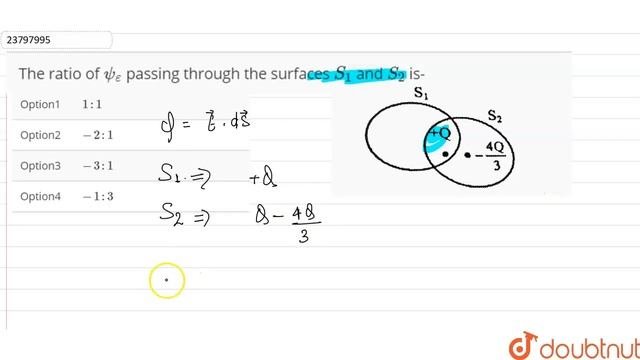 23797995
The ratio of ψ_ε passing through the surfaces S₁ and S₂ is-
Option1 1 : 1
Option2 − 2 : 1
Option3 − 3 : 1
Option4 − 1 : 3
S₁
S₂
+Q
− 4Q/3
ϕ = E⃗ . dS⃗
S₁ ⇒ +Q
S₂ ⇒ Q − 4Q/3
doubtnut